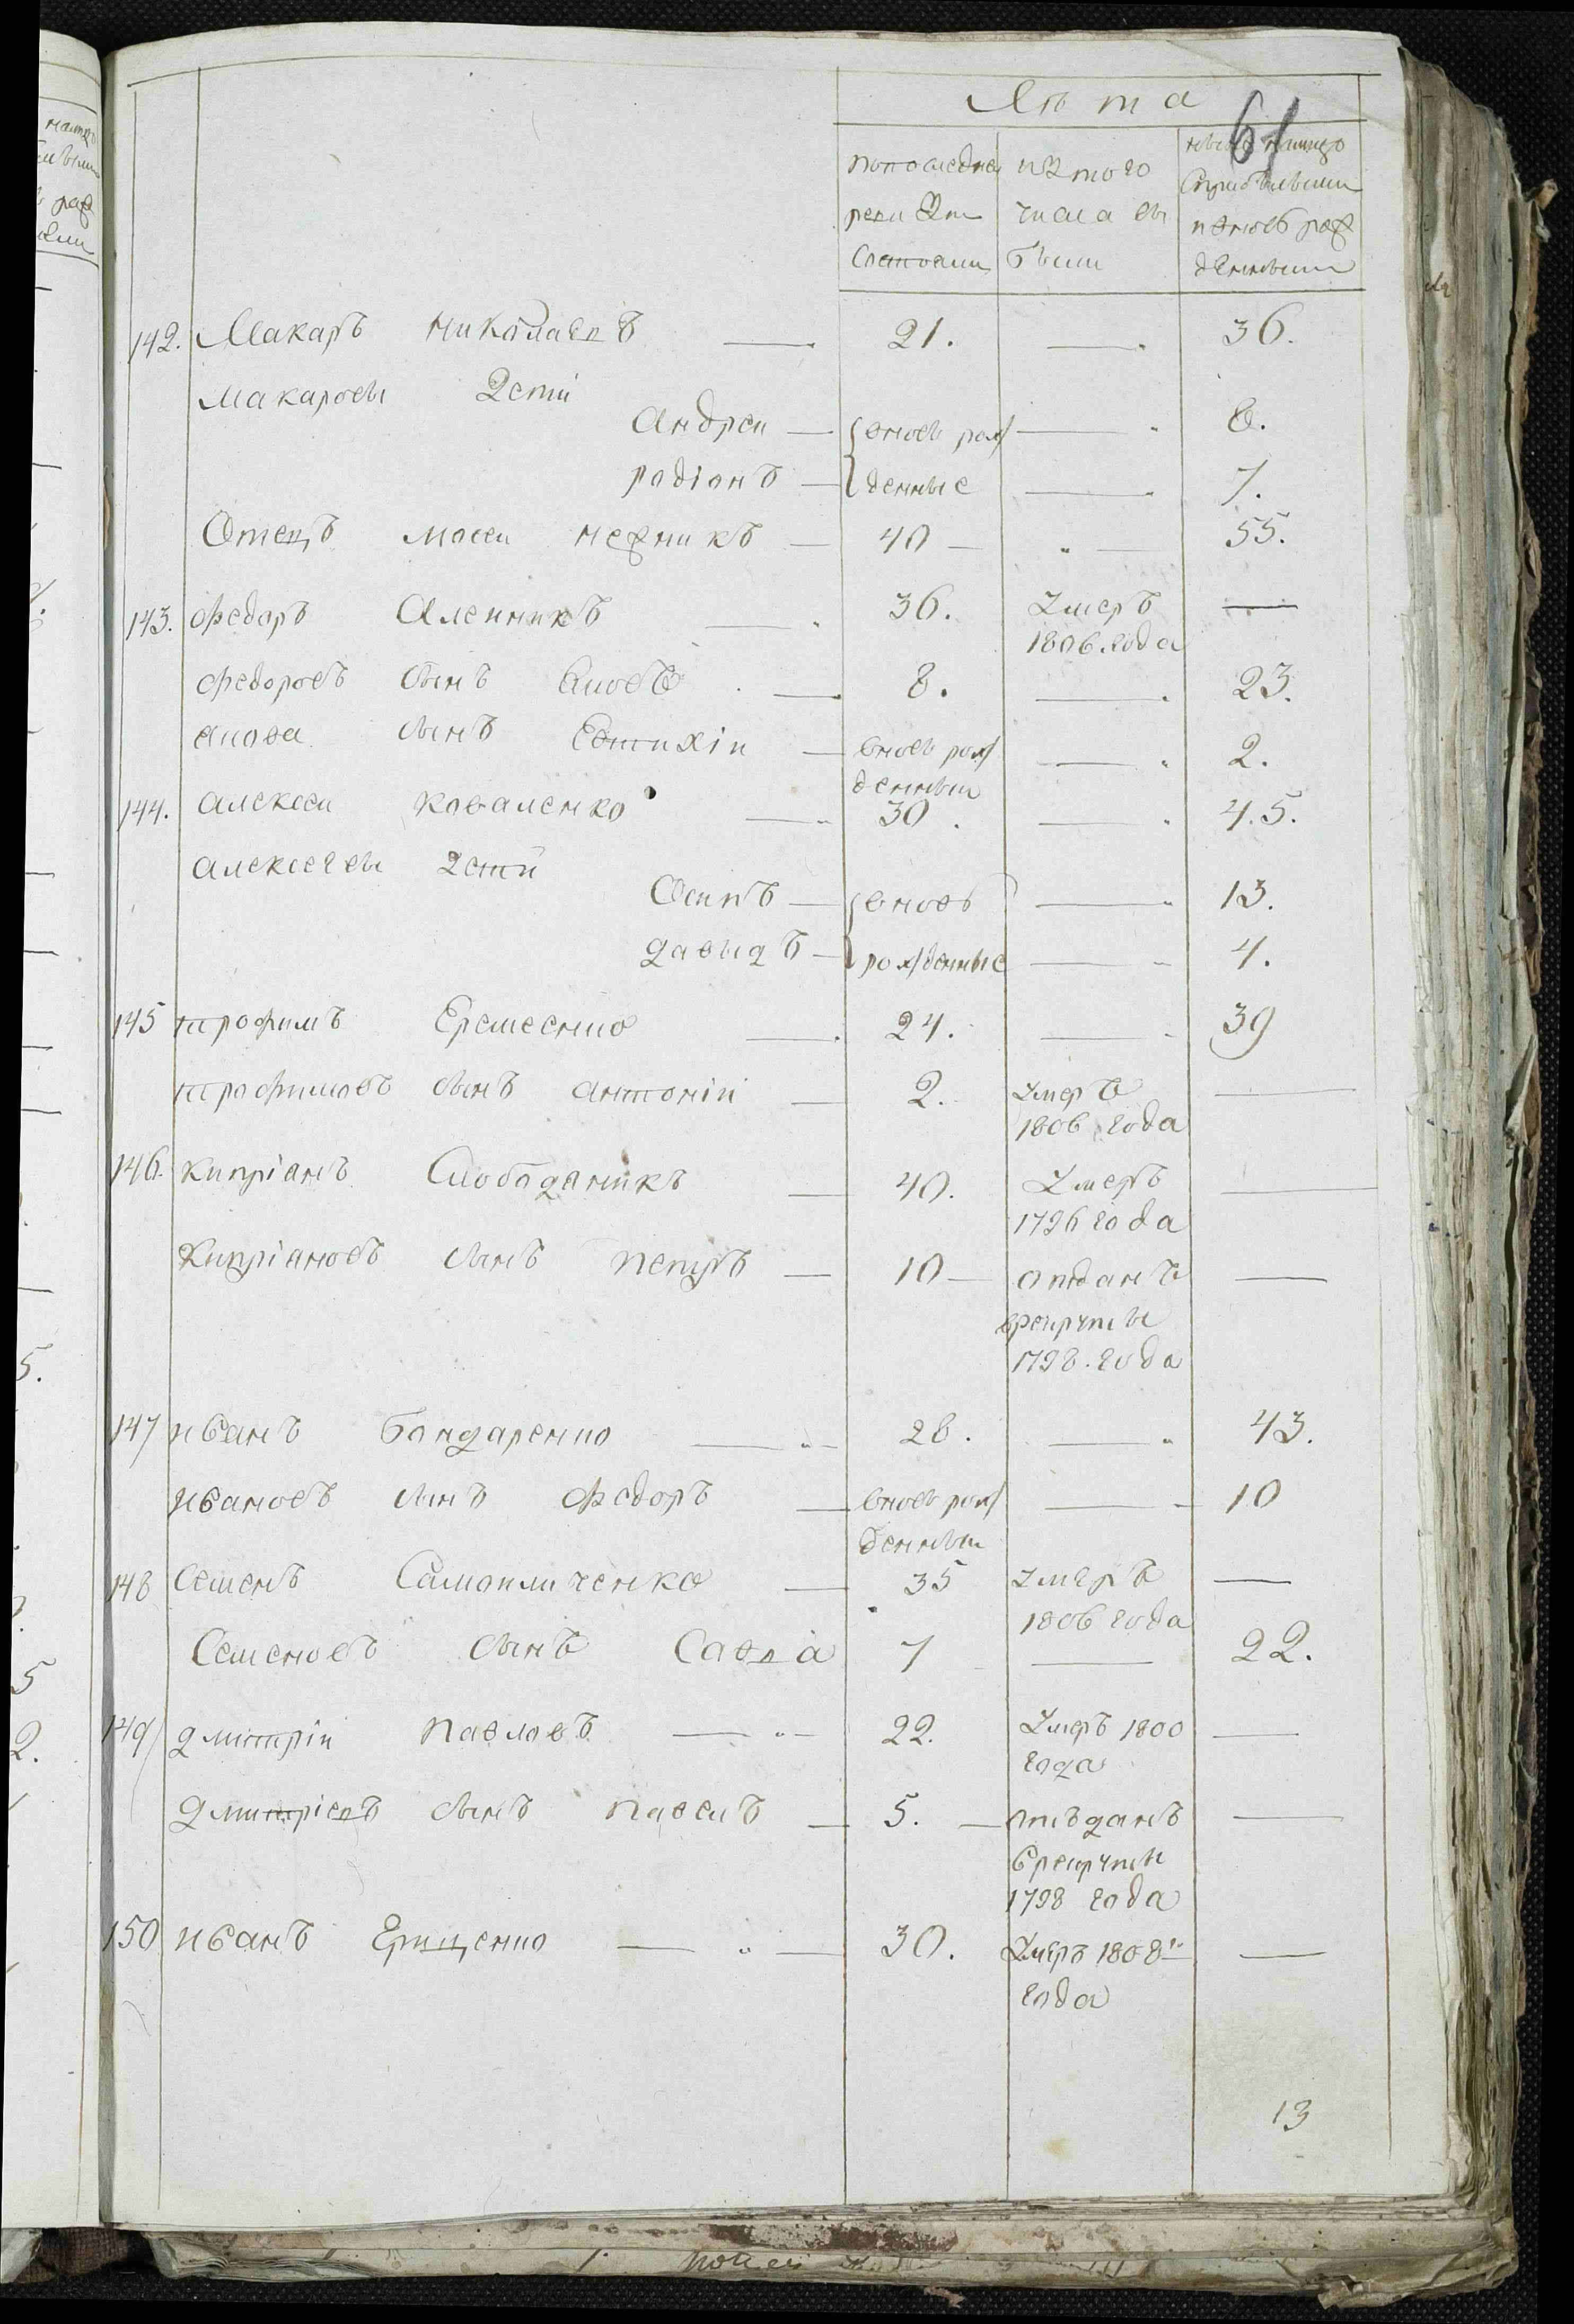 Лѣта
61
попоследней изтого ныне налицо
ревизiи числа вы Сприбывыми
Состояли были ивновь раж
денными
142. Макаръ Николаевъ 21. 36.
Макаровы дети
Андреи {вновь рож 8.
родiонъ денные 7.
Отецъ 40 55.
143. Федоръ Алеиникъ 36. Умеръ
1806 года
Федоровъ сынъ Яковъ 8. 23.
Якова сынъ Евтихiи вновь рож 2.
денныи
144. Алексеи Коваленко 30. 45.
Алексеевы дети
Осипъ {вновь 13.
Давыдъ рожденные 4.
145 Трофимъ Еремеенко 24. 39
Трофимовъ сынъ Антонiи 2. Умеръ
1806 года
146. Кипрiанъ Слободяникъ 40. Умеръ
1796 года
Кипрiановъ сынъ Петръ 10 отданъ
врекруты
1798. года
147 Иванъ Бондаренко 28. 43.
Ивановъ сынъ Федоръ вновь рож 10
денныи
148 Семенъ Самоиличенко 35 Умеръ
1806 года
Семеновъ сынъ Савва 7 22.
149 Дмитрiи Павловъ 22. Умеръ 1800
года
Дмитрiевъ сынъ Павелъ 5. отъданъ
врекруты
1798 года
150 Иванъ Грищенко 30. Умеръ 1808го
года
13